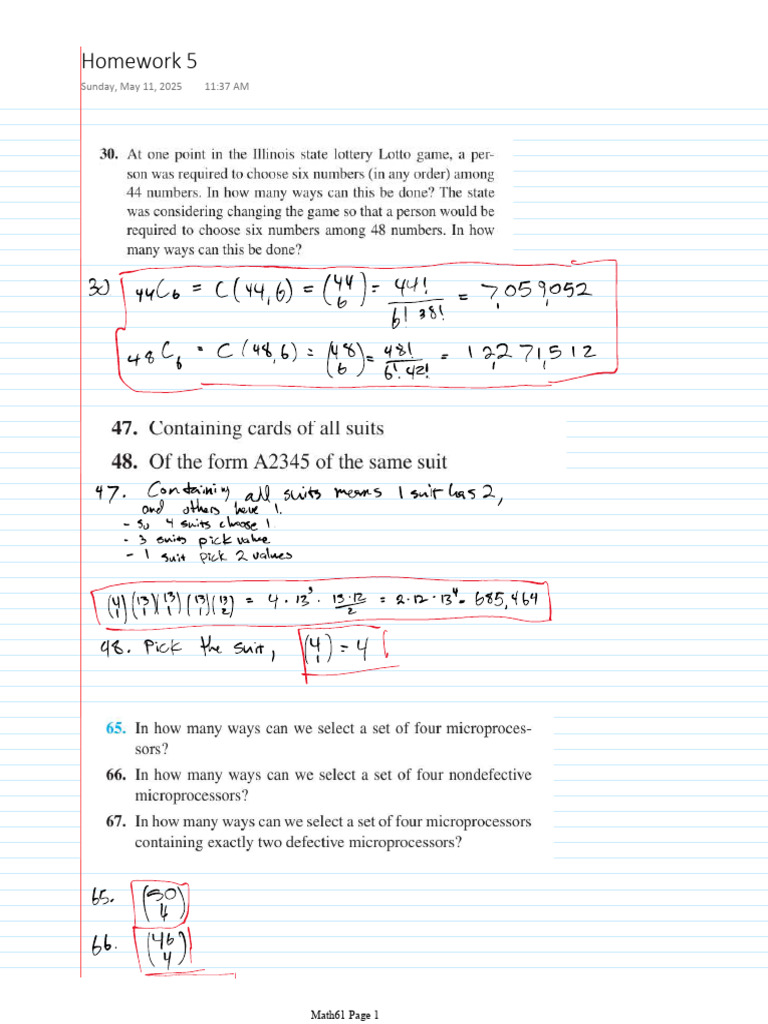 Homework 5
Sunday, May 11, 2025 11:37 AM
30. At one point in the Illinois state lottery Lotto game, a per-
son was required to choose six numbers (in any order) among
44 numbers. In how many ways can this be done? The state
was considering changing the game so that a person would be
required to choose six numbers among 48 numbers. In how
many ways can this be done?
30) 44C6 = C(44,6) = (44 6) = 44! / 6! 38! = 7,059,052
48C6 = C(48,6) = (48 6) = 48! / 6! 42! = 12,271,512
47. Containing cards of all suits
48. Of the form A2345 of the same suit
47. Containing all suits means 1 suit has 2,
and others have 1.
- so 4 suits choose 1
- 3 suits pick value
- 1 suit pick 2 values
(4 1)(13 1)(13 1)(13 1)(13 2) = 4 · 13³ · 13·12 / 2 = 2·12·13⁴ = 685,464
48. Pick the suit, (4 1) = 4
65. In how many ways can we select a set of four microproces-
sors?
66. In how many ways can we select a set of four nondefective
microprocessors?
67. In how many ways can we select a set of four microprocessors
containing exactly two defective microprocessors?
65. (50 4)
66. (46 4)
Math61 Page 1